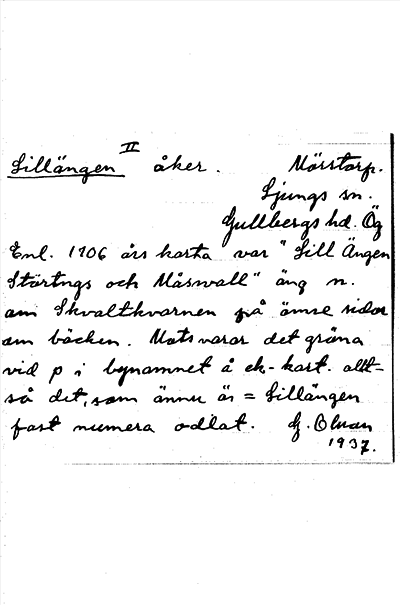 Lillängen II åker. Mörstorp.
Ljungs sn.
Gullbergs hd. Ög
Enl. 1706 års karta var "Lill Ängen
Störtngs och Måswall" äng n.
om Skvaltkvarnen på ömse sidor
om bäcken. Motsvarar det gröna
vid p i bynamnet å ek-kart. allt-
så det, som ännu är = Lillängen
fast numera odlat. G.
1937.